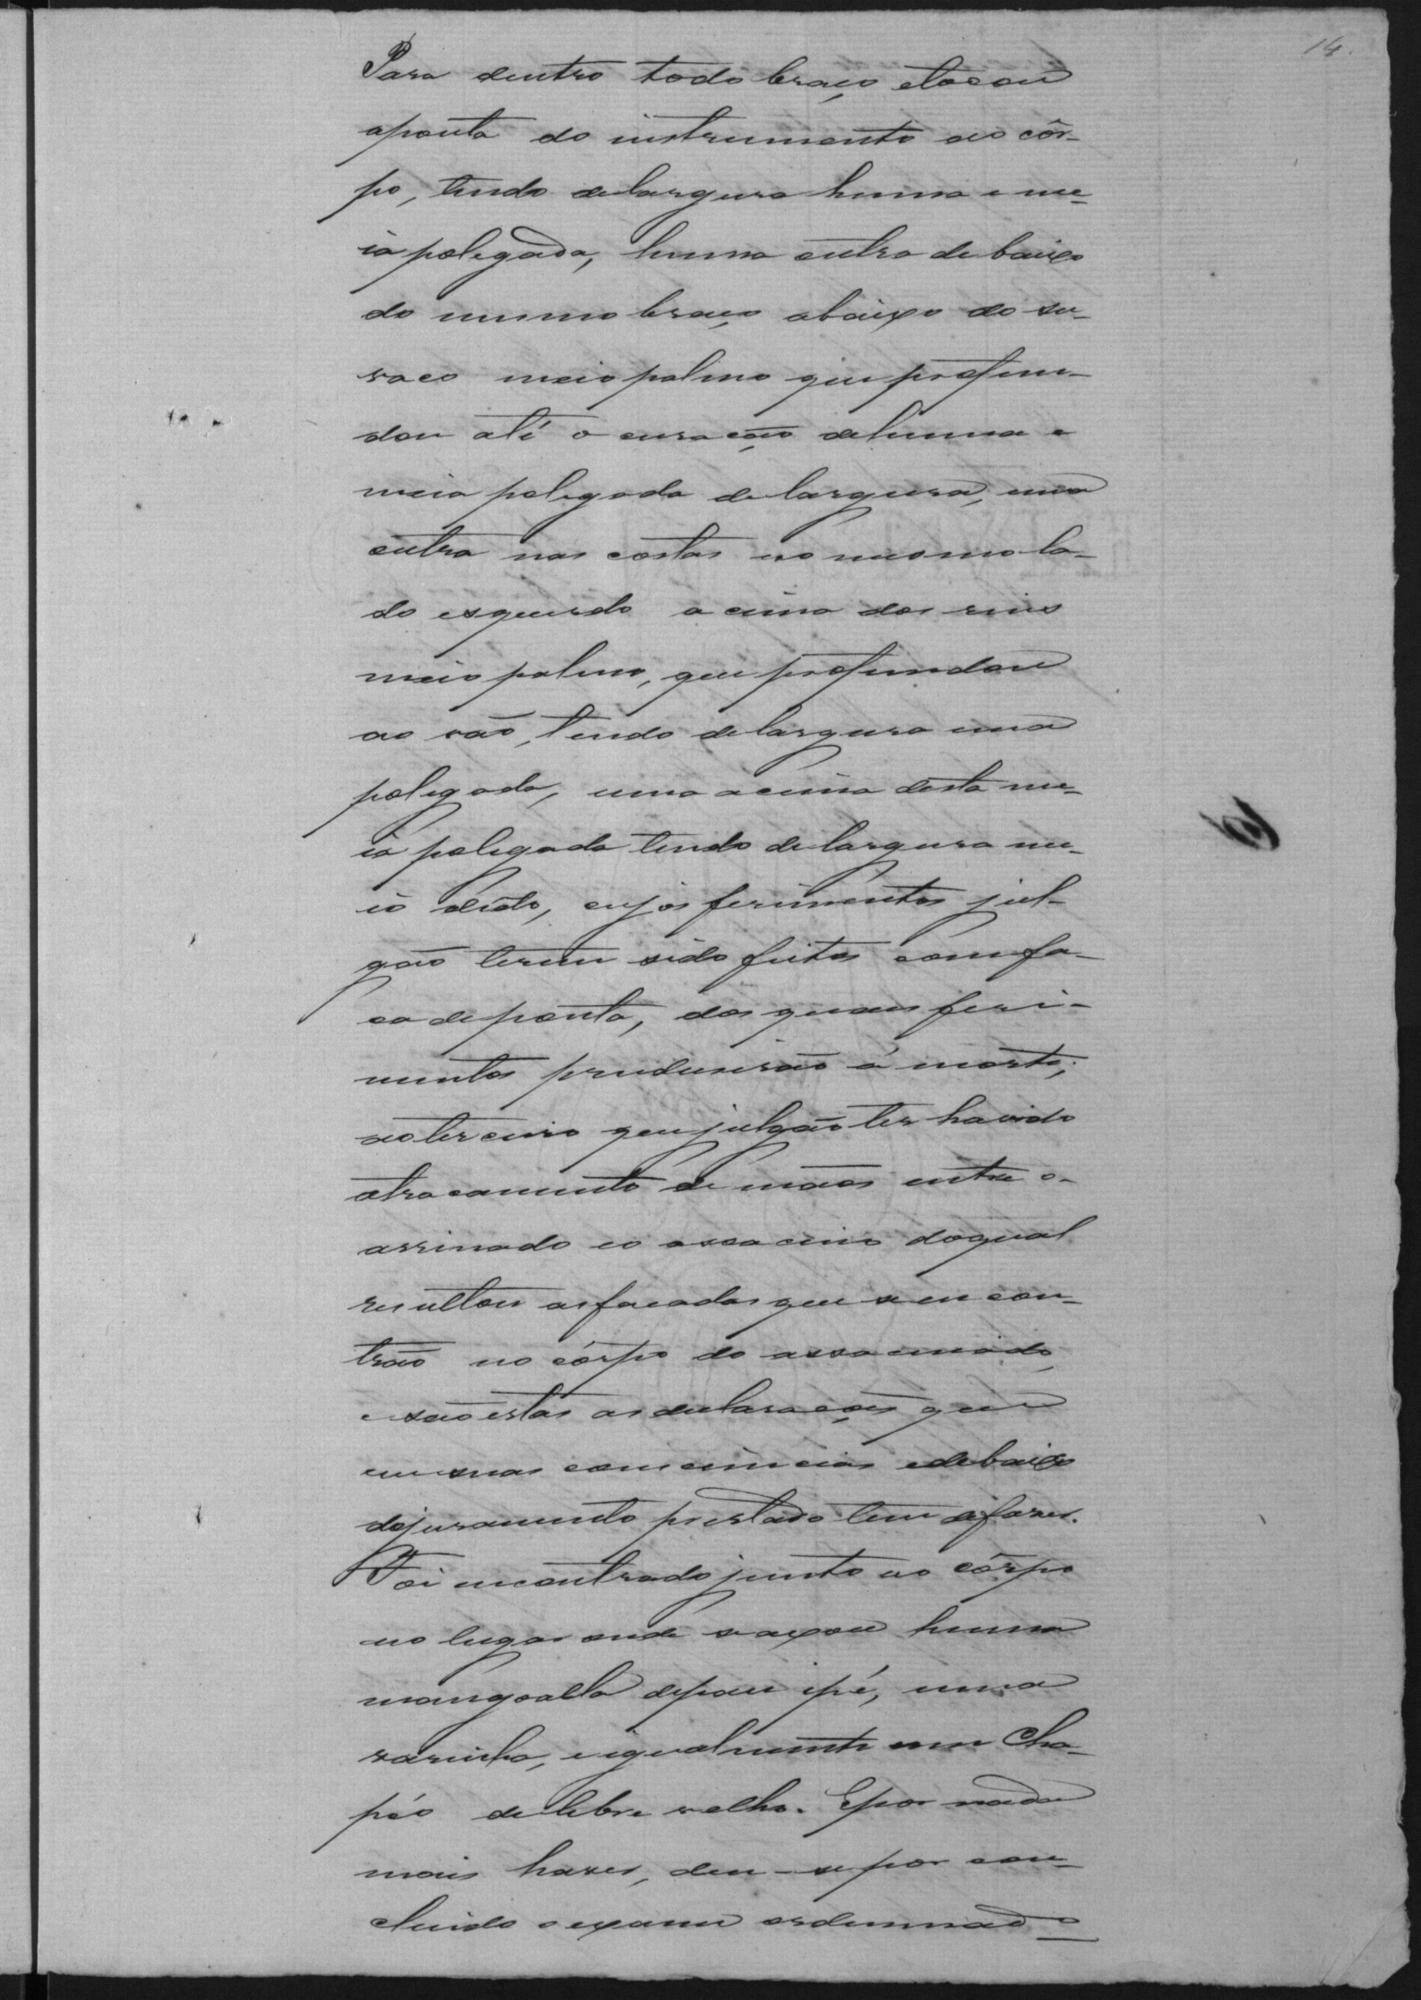 14.
Para dentro todo braço etocou
aponta do instrumento ao côr-
po, tendo delargura huma e me-
ia polegada, huma outra debaixo
do mesmo braço abaixo do su-
vaco meio palmo que profun-
dou até o curação dehuma e
meia polegada de largura, uma
outra nas costas no mesmo la-
do esquerdo a cima dos rins
meio palmo, que profundou
ao vão, tendo delargura uma
polegada, uma acima desta me-
ia polegada tendo delargura me-
io dedo, cujos ferimentos jul-
gão terem sido feitos com fa-
ca deponta, dos quaes feri-
mentos produsirão á morte;
ao terceiro que julgão ter havido
atracamento de mãos entre o
assinado eo assacino doqual
resultou asfacadas que se encon-
trão no côrpo do assacinado,
e são estas as declaracões que
em suas consciencias edebaixo
dojuramento prestado tem afaser.
Foi encontrado junto ao côrpo
no lugar onde se axou huma
mangoalla depau ipé, uma
varinha, e igualmente um Cha-
péo de lebre velho. Epor nada
mais haver, deu-se por con-
cluido o exame ordennado